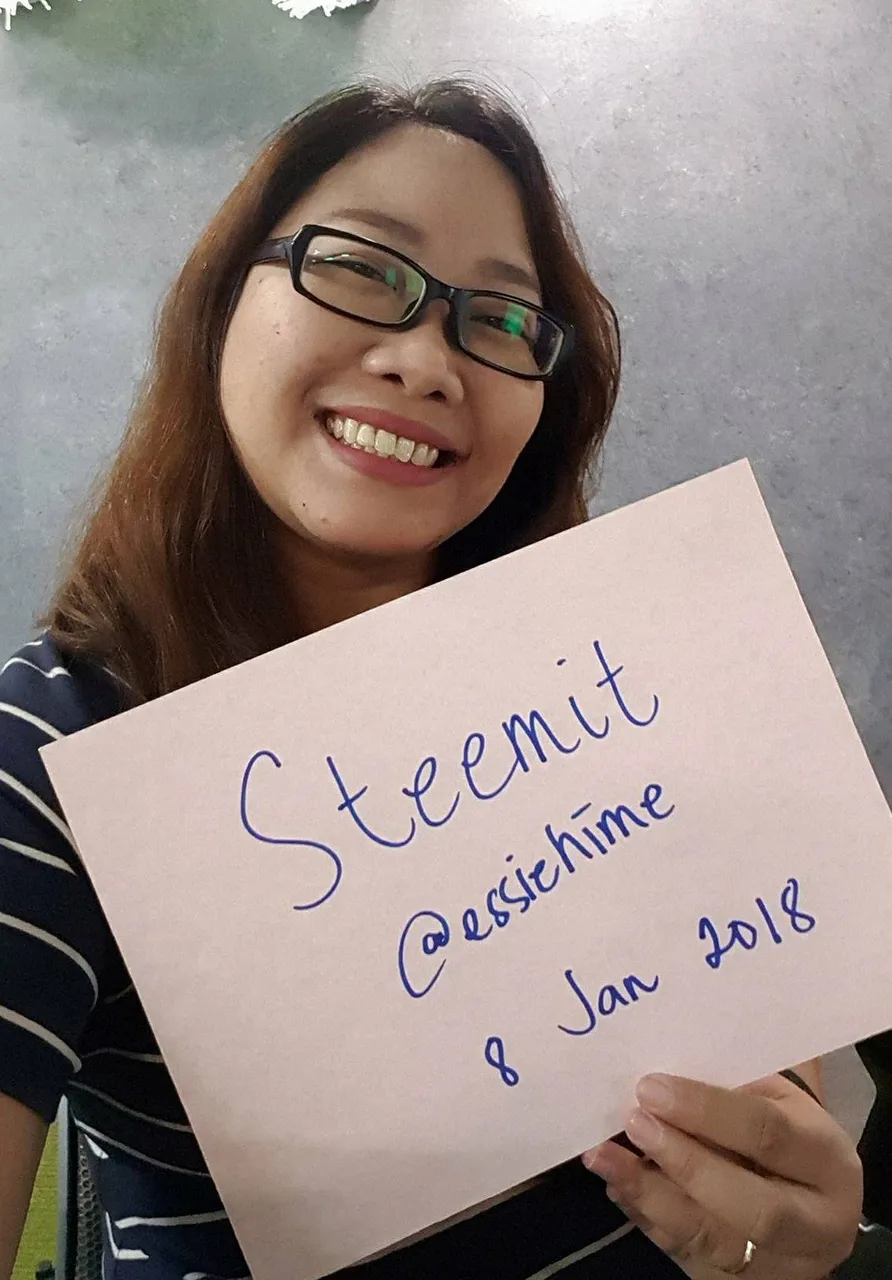 Steemit
@essiehime
8 Jan 2018